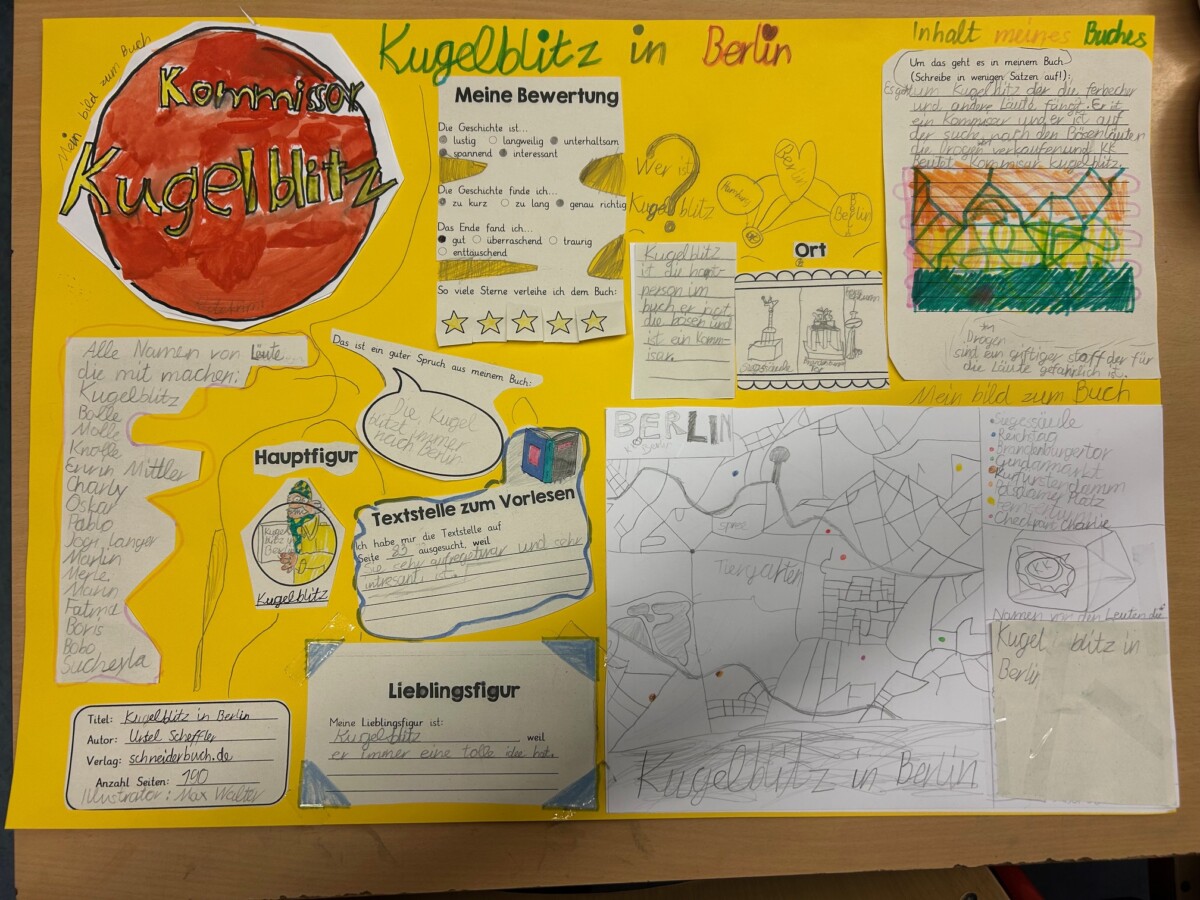 Kugelblitz in Berlin
Mein bild zum Buch
Kommissar
Kugelblitz
Meine Bewertung
Die Geschichte ist...
lustig langweilig unterhaltsam
spannend interessant
Die Geschichte finde ich...
zu kurz zu lang genau richtig
Das Ende fand ich...
gut überraschend traurig
enttäuschend
So viele Sterne verleihe ich dem Buch:
Wer ist
Kugelblitz
?
Hamburg
Berlin
Berlin
Kugelblitz
ist di haupt-
person im
buch er jagt
die bösen und
ist ein Komm-
isar.
Ort
Siegessäule
Inhalt meines Buches
Um das geht es in meinem Buch
(Schreibe in wenigen Sätzen auf!):
Es geht um Kugelblitz der die ferbecher
und andere Läute fängt. Er it
ein Kommisar und er ist auf
der suche nach den Bösen läuten
die Drogen verkaufen und KK
beutet Kommisar Kugelblitz.
Drogen
sind ein giftiger staff der für
die Läute gefährlich ist.
Alle Namen von Läute...
die mit machen:
Kugelblitz
Bolle
Molle
Knolle
Enrin Mittler
Charly
Oskar
Pablo
Jogi langer
Martin
Merle
Mann
Fatma
Boris
Bobo
Sucheyla
Das ist ein guter Spruch aus meinem Buch:
Die Kugel
blitzt immer
nach Berlin
Hauptfigur
Kugel
blitz in
Berlin
Kugelblitz
Textstelle zum Vorlesen
Ich habe mir die Textstelle auf
Seite 83 ausgesucht, weil
Sie sehr aufregetwar und sehr
intresant ist.
Lieblingsfigur
Meine Lieblingsfigur ist:
Kugelblitz weil
er immer eine tolle idee hat.
Titel: Kugelblitz in Berlin
Autor: Ursel Scheffler
Verlag: schneiderbuch.de
Anzahl Seiten: 190
Illustrator: Max Walter
Mein bild zum Buch
BERLIN
spree
Tiergarten
Kugelblitz in Berlin
Siegessäule
Reichtag
Brandenburgertor
Kurfürstendamm
Potsdamer Platz
Checkpoint charlie
KK
Namen von den Leuten die
Kugel blitz in
Berlin